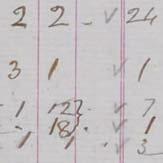 2 2 - ✓ 24
3 1 ✓ 1
1 12} ✓ 7
- 18} . ✓ 1
1 1 . ✓ 3